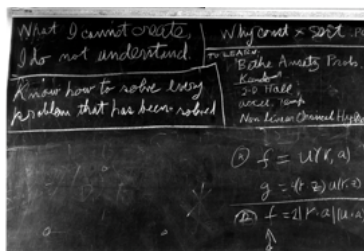 What I cannot create,
I do not understand.
Know how to solve every
problem that has been solved
Why const × sort
TO LEARN:
Bethe Ansatz Prob.
Kondo
2-D Hall
accel. Temp
Non Linear Classical Hydro
f = u(r, a)
g =
f = 2|r·a|